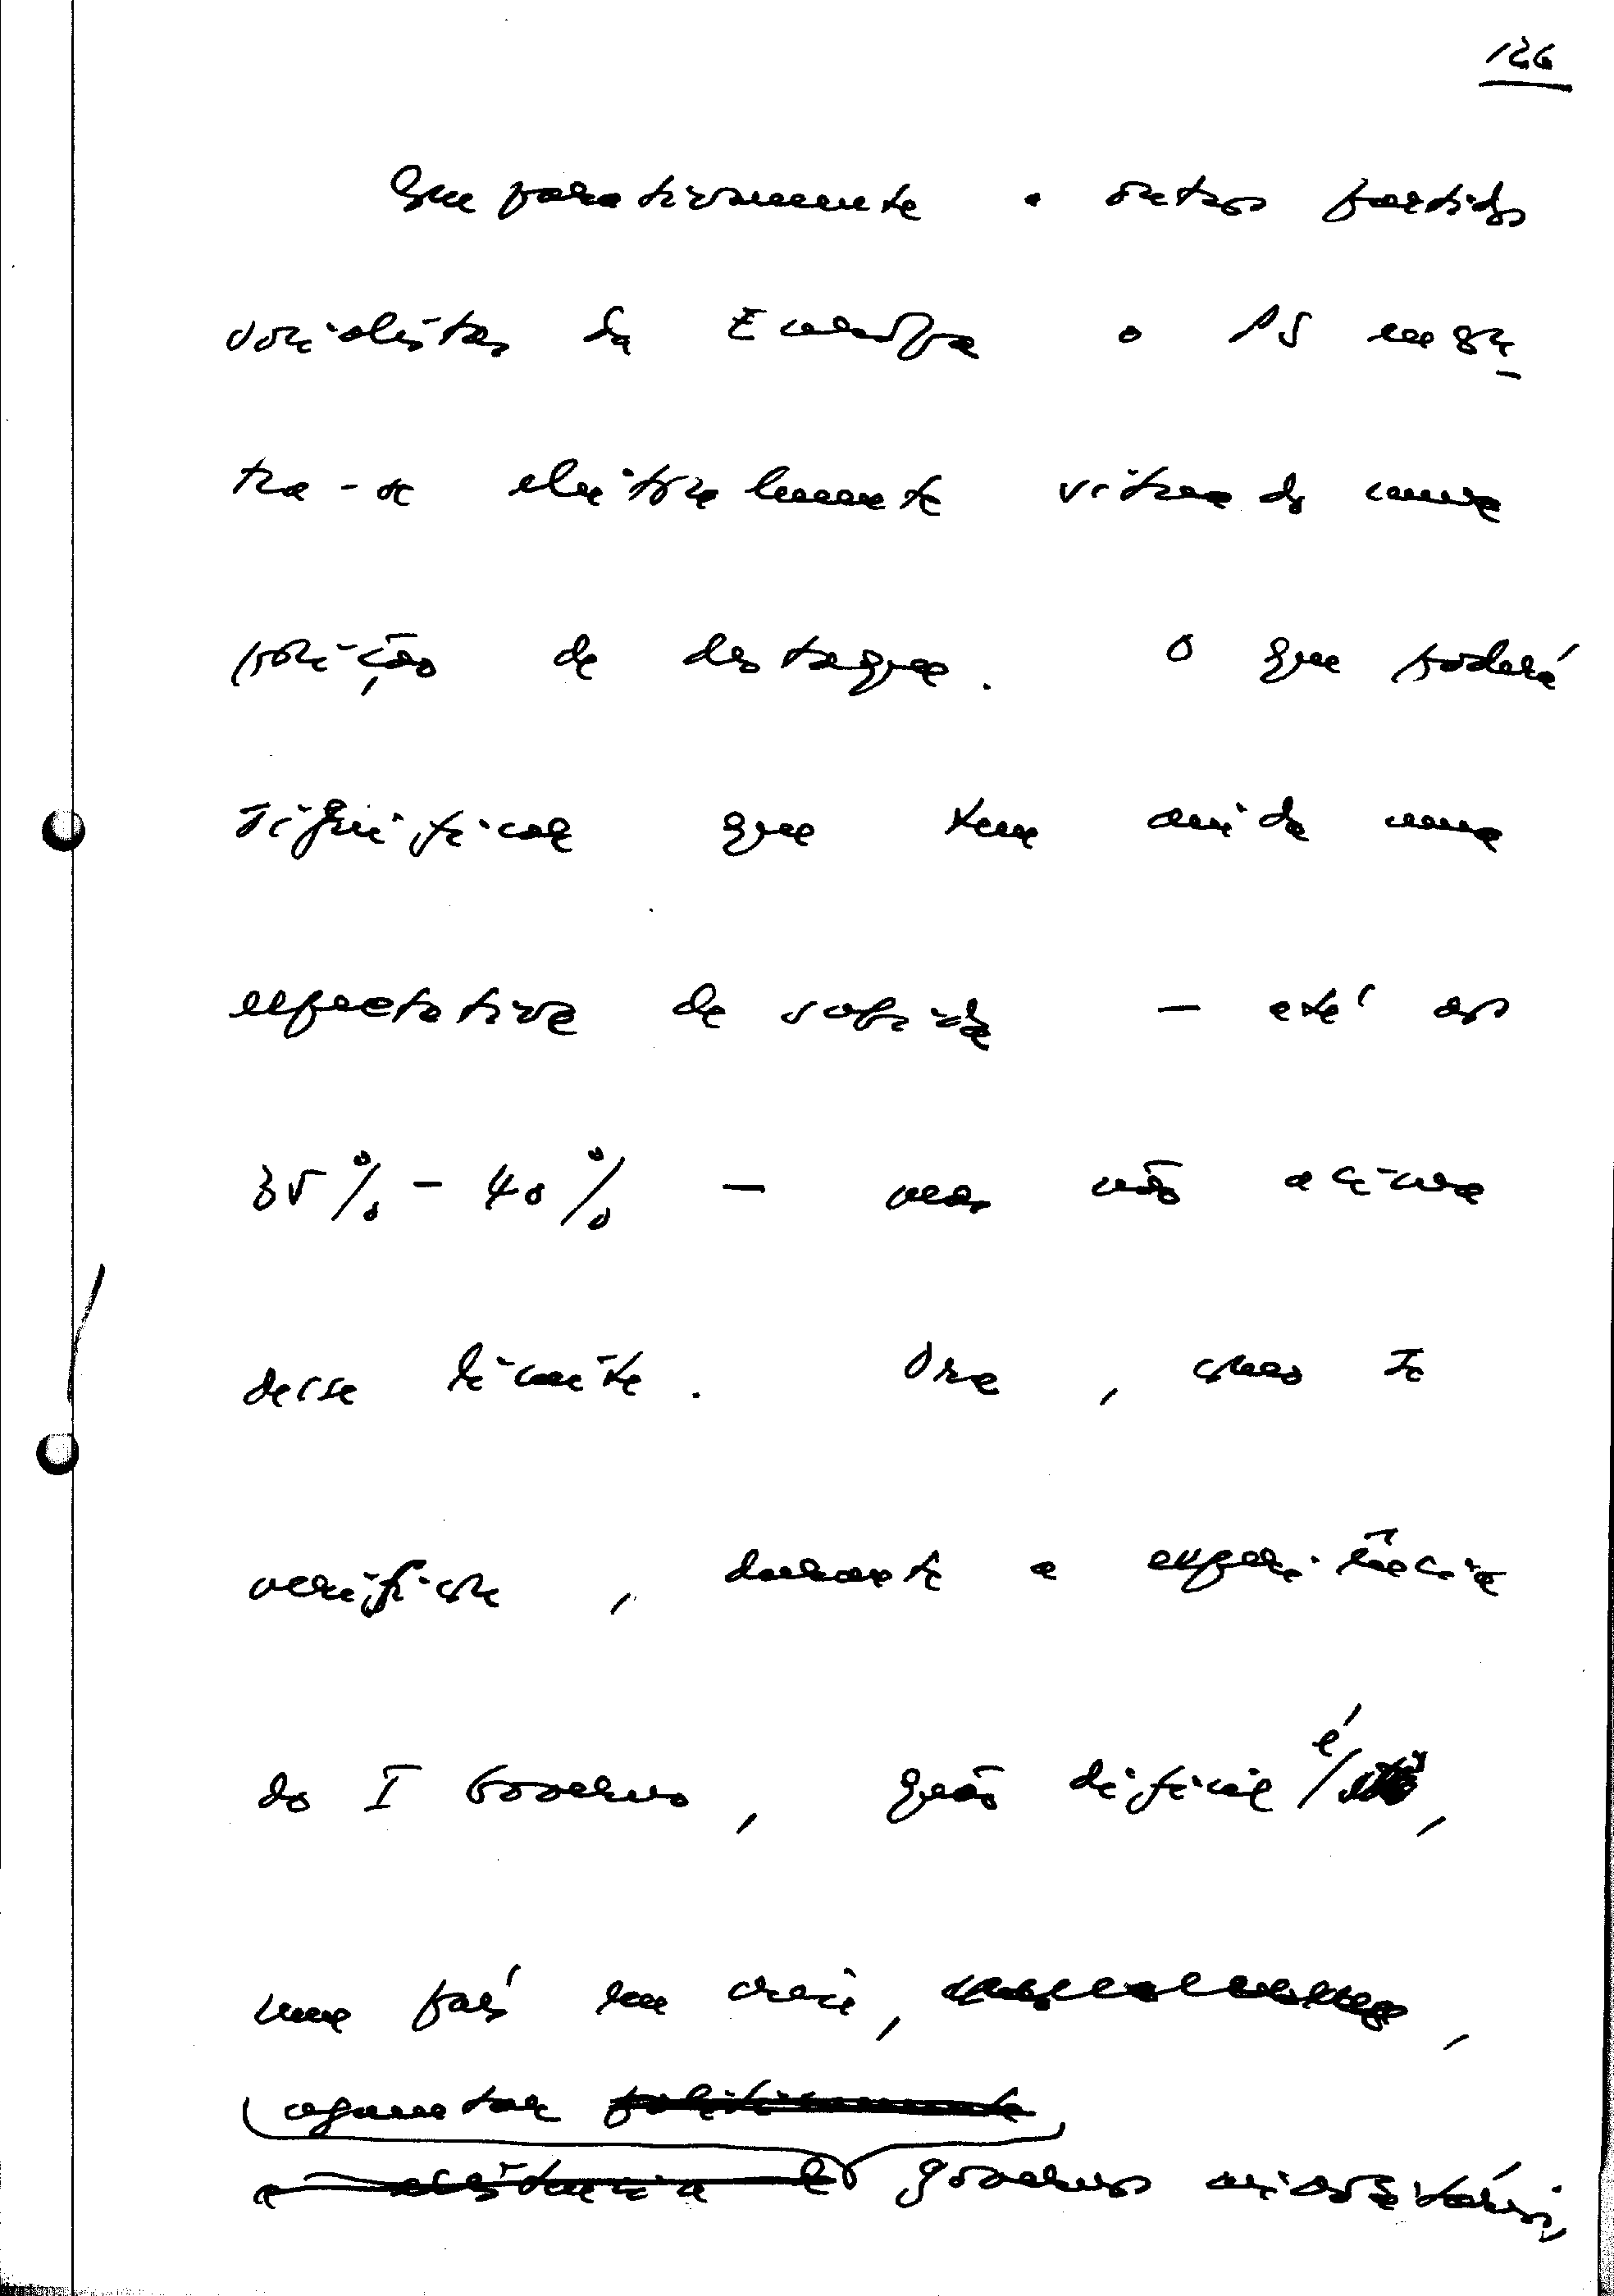 126
Que parativamente a outros partidos
socialistas da Europa o PS encon
tra-se eleitoralmente situado numa
posição de destaque. O que poderá
significar que tem ainda uma
expectativa de subida — até aos
35% - 40% — mas não acima
desse limite. Ora, como se
verificou, durante a experiência
do I Governo, quão difícil é,
num país em crise,
aguentar
governos minoritários,